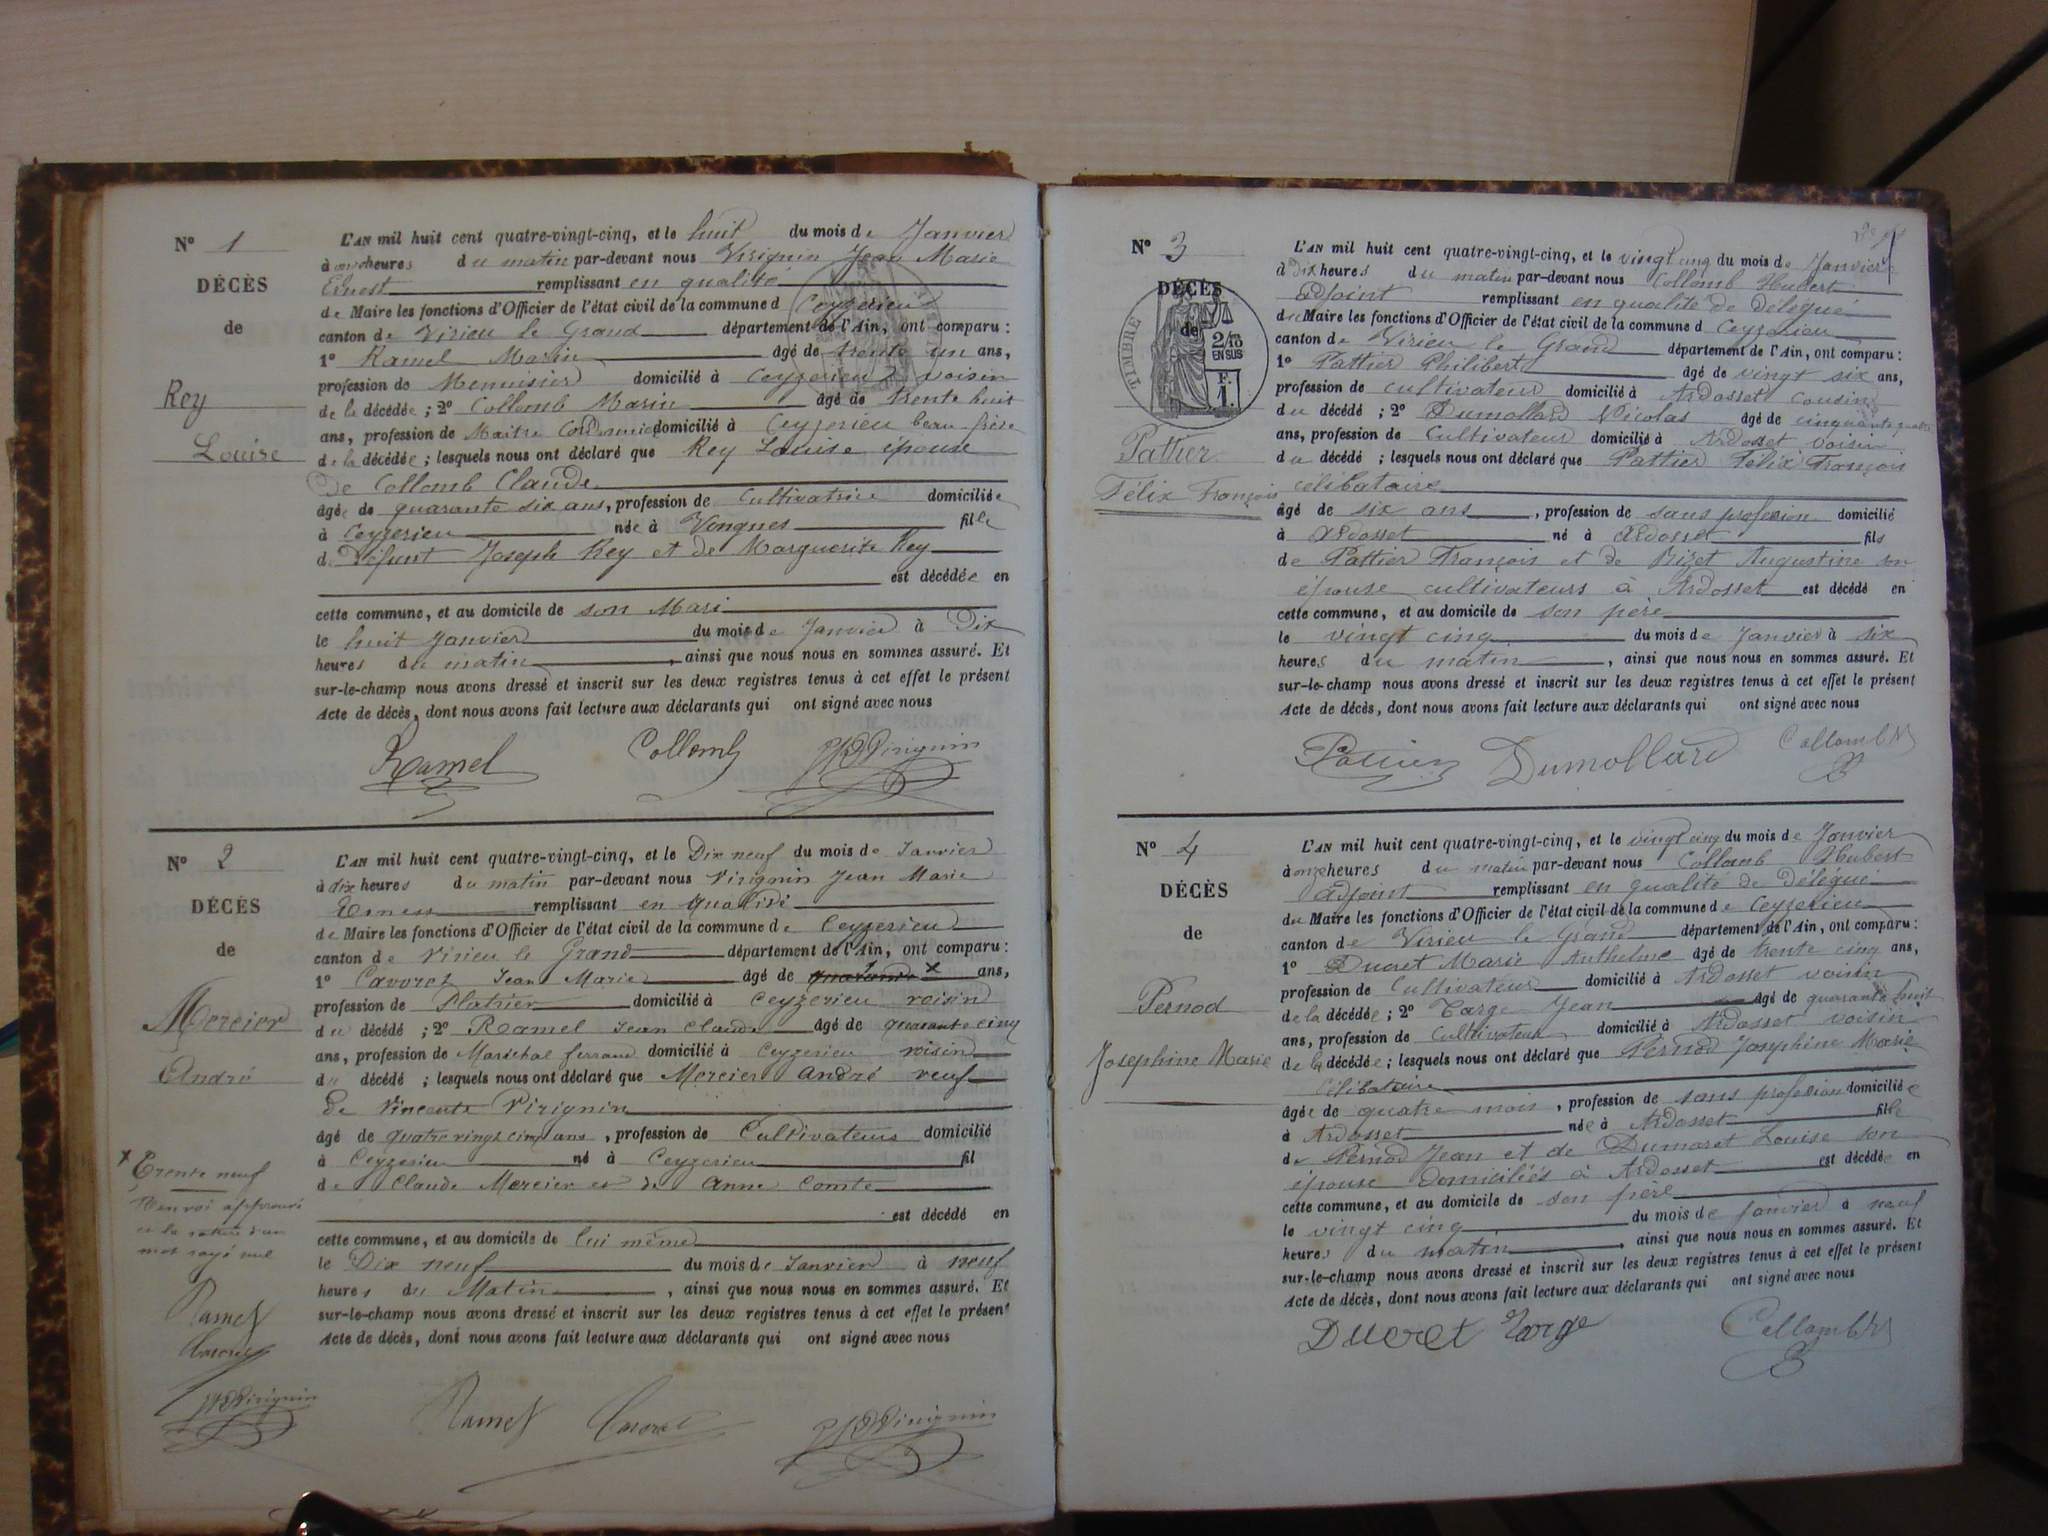 N° 1
DÉCÈS
de
Rey
Louise
L'AN mil huit cent quatre-vingt-cinq, et le huit du mois de Janvier
à onze heures du matin par-devant nous Virignin Jean Marie
Ernest remplissant en qualité
de Maire les fonctions d'Officier de l'état civil de la commune d Ceyzerieu
canton de Virieu le Grand département de l'Ain, ont comparu :
1° Ramel Marin âgé de trente un ans,
profession de Menuisier domicilié à Ceyzerieu voisin
de la décédée ; 2° Collomb Marin âgé de trente huit
ans, profession de Maitre Cordonnier domicilié à Ceyzerieu beau frère
de la décédée ; lesquels nous ont déclaré que Rey Louise épouse
De Collomb Claude
âgée de quarante six ans, profession de Cultivatrice domiciliée
à Ceyzerieu née à Vongnes fille
de Défunt Joseph Rey et de Marguerite Rey
est décédée en
cette commune, et au domicile de son Mari
le huit Janvier du mois de Janvier à Dix
heures du matin, ainsi que nous nous en sommes assuré. Et
sur-le-champ nous avons dressé et inscrit sur les deux registres tenus à cet effet le présent
Acte de décès, dont nous avons fait lecture aux déclarants qui ont signé avec nous
Ramel Collomb Virignin
N° 2
DÉCÈS
de
Mercier
André
L'AN mil huit cent quatre-vingt-cinq, et le Dix neuf du mois de Janvier
à dix heures du matin par-devant nous Virignin Jean Marie
Ernest remplissant en qualité
de Maire les fonctions d'Officier de l'état civil de la commune de Ceyzerieu
canton de Virieu le Grand département de l'Ain, ont comparu :
1° Cavoret Jean Marie âgé de quarante x ans,
profession de Platrier domicilié à Ceyzerieu voisin
du décédé ; 2° Ramel Jean Claude âgé de quarante cinq
ans, profession de Maréchal ferrand domicilié à Ceyzerieu voisin
du décédé ; lesquels nous ont déclaré que Mercier André veuf
De Vincente Virignin
âgé de quatre vingt cinq ans, profession de Cultivateur domicilié
à Ceyzerieu né à Ceyzerieu fil
de Claude Mercier et de Anne Comte
est décédé en
cette commune, et au domicile de lui même
le Dix neuf du mois de Janvier à neuf
heures du Matin, ainsi que nous nous en sommes assuré. Et
sur-le-champ nous avons dressé et inscrit sur les deux registres tenus à cet effet le présent
Acte de décès, dont nous avons fait lecture aux déclarants qui ont signé avec nous
x Trente neuf
Renvoi approuvé
et la rature d'un
mot rayé nul
Ramel
Cavoret
Virignin
Ramel Cavoret Virignin
N° 3
DÉCÈS
de
TIMBRE
2/10
EN SUS
F.
1.
Pattier
Félix François
L'AN mil huit cent quatre-vingt-cinq, et le vingt cinq du mois de Janvier
à Dix heures du matin par-devant nous Collomb Hubert
Adjoint remplissant en qualité de Délégué
du Maire les fonctions d'Officier de l'état civil de la commune d Ceyzerieu
canton de Virieu le Grand département de l'Ain, ont comparu :
1° Pattier Philibert âgé de vingt six ans,
profession de cultivateur domicilié à Ardosset cousin
du décédé ; 2° Dumollard Nicolas âgé de cinquante quatre
ans, profession de Cultivateur domicilié à Ardosset voisin
du décédé ; lesquels nous ont déclaré que Pattier Félix François
célibataire
âgé de six ans, profession de sans profession domicilié
à Ardosset né à Ardosset fils
de Pattier François et de Bizet Augustine son
épouse cultivateurs à Ardosset est décédé en
cette commune, et au domicile de son père
le vingt cinq du mois de Janvier à six
heures du matin, ainsi que nous nous en sommes assuré. Et
sur-le-champ nous avons dressé et inscrit sur les deux registres tenus à cet effet le présent
Acte de décès, dont nous avons fait lecture aux déclarants qui ont signé avec nous
Pattier Dumollard Collomb H
N° 4
DÉCÈS
de
Pernod
Josephine Marie
L'AN mil huit cent quatre-vingt-cinq, et le vingt cinq du mois de Janvier
à onze heures du matin par-devant nous Collomb Hubert
adjoint remplissant en qualité de Délégué
du Maire les fonctions d'Officier de l'état civil de la commune de Ceyzerieu
canton de Virieu le Grand département de l'Ain, ont comparu :
1° Ducret Marie Anthelme âgé de trente cinq ans,
profession de Cultivateur domicilié à Ardosset voisin
de la décédée ; 2° Targe Jean âgé de quarante huit
ans, profession de Cultivateur domicilié à Ardosset voisin
de la décédée ; lesquels nous ont déclaré que Pernod Josephine Marie
Célibataire
âgée de quatre mois, profession de sans profession domiciliée
à Ardosset née à Ardosset fille
de Pernod Jean et de Dumaret Louise son
épouse Domiciliés à Ardosset est décédée en
cette commune, et au domicile de son père
le vingt cinq du mois de janvier à neuf
heures du matin, ainsi que nous nous en sommes assuré. Et
sur-le-champ nous avons dressé et inscrit sur les deux registres tenus à cet effet le présent
Acte de décès, dont nous avons fait lecture aux déclarants qui ont signé avec nous
Ducret Targe Collomb H